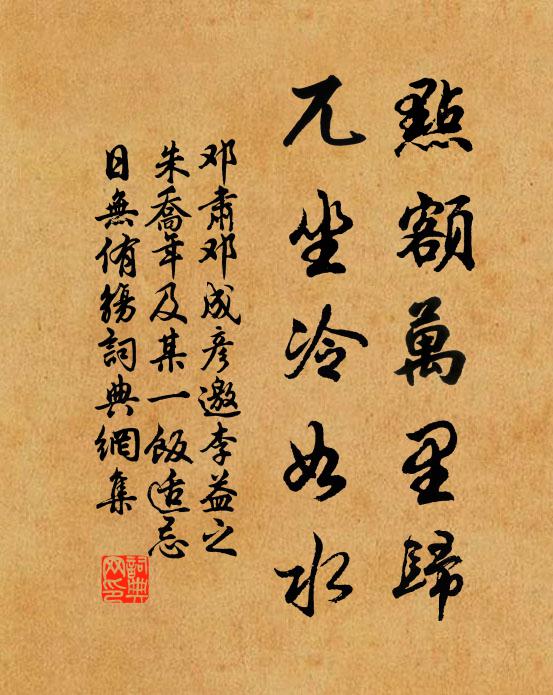 點額萬里歸
兀坐冷如水
邓肅邓成彦邀李益之
朱喬年及某一飯适忌
日無侑觴詞典網集
詞典
网印